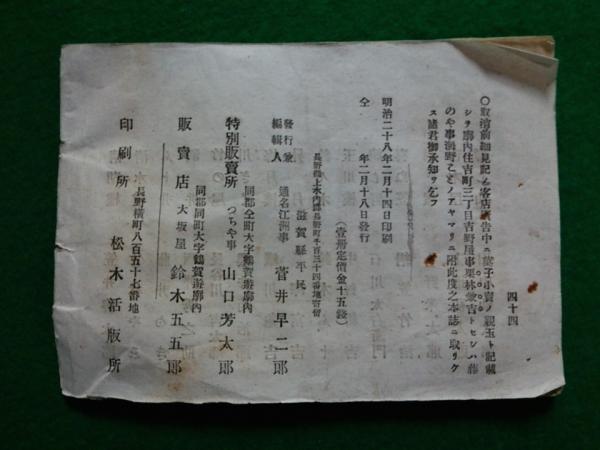 四十四
○取消前細見記ノ各客店廣告中ニ菓子小賣ノ親玉ト記載
シタ廓内住吉町三丁目吉野屋事栗林兼吉トセシハ藤
のや事海野ことノアヤマリニ附此度之本誌ニ取リケ
ス諸君御承知ヲ乞フ
明治二十八年二月十四日印刷
仝 年二月十八日發行
(壹册定價金十五錢)
長野縣上水内郡長野町千百三十四番地寄留
滋賀縣平民
發行兼
編輯人
通名江洲事 菅井早二郎
同郡仝町大字鶴賀遊廓内
特別販賣所 つちや事 山口芳太郎
同郡同町大字鶴賀遊廓内
販賣店 大坂屋 鈴木五五郎
長野横町八百五十七番地
印刷所 松木活版所